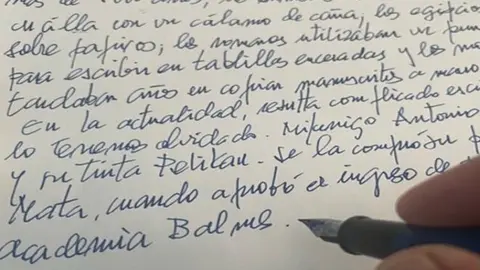 mes de
cuálla con un cálamo de caña, los egipcios
sobre papiros, los romanos utilizaban un pun
para escribir en tablillas enceradas y los mo
tardaban años en copiar manuscritos a mano
En la actualidad, resulta complicado escri
lo tenemos olvidado. Mi amigo Antonio
y su tinta Pelikan. Se la compró su p
Mata, cuando aprobó el ingreso de
academia Balmes.